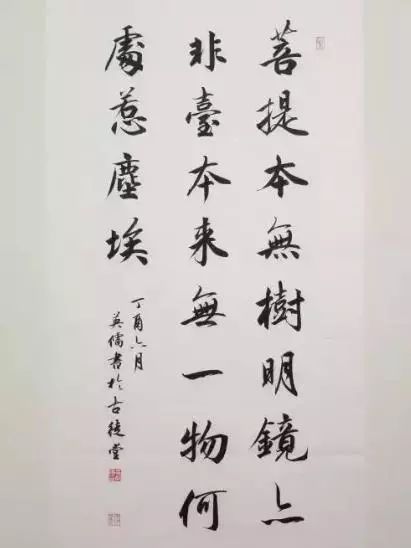 菩提本無樹明鏡亦
非臺本来無一物何
處惹塵埃
丁酉六月
英儒書於古<br>堂